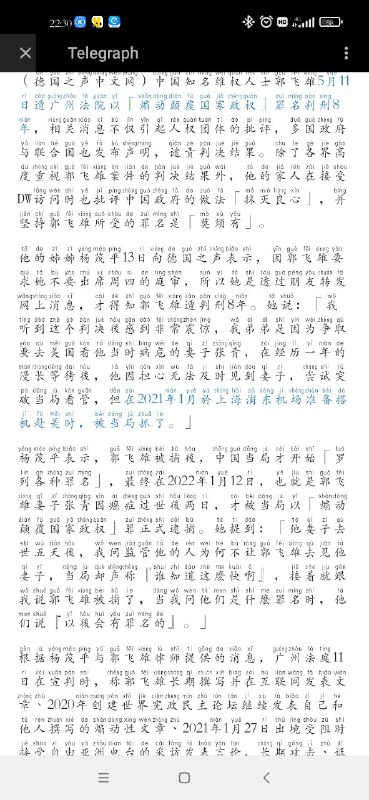 22:30
Telegraph
（德国之声中文网）中国知名维权人士郭飞雄5月11
日遭广州法院以「煽动颠覆国家政权」罪名判刑8
年，相关消息不仅引起人权团体的批评，多国政府
与联合国也发布声明，谴责判决结果。除了各界高
度重视郭飞雄案件的判决结果外，他的家人在接受
DW访问时也批评中国政府的做法「抹灭良心」，并
坚持郭飞雄所受的罪名是「莫须有」。
他的姊姊杨茂平13日向德国之声表示，因郭飞雄要
求她不要出席周四的庭审，所以她是透过朋友转发
网上消息，才得知郭飞雄遭判刑8年。她说：「我
听到这个判决後感到非常震惊，我弟弟是因为争取
要去美国看他当时病危的妻子张青，在经历一年的
漫长等待後，他因担心无法及时见到妻子，尝试突
破当局看管，但在2021年1月於上海浦东机场准备搭
机赴美时，被当局抓了。」
杨茂平表示，郭飞雄被捕後，中国当局才开始「罗
列各种罪名」，最终在2022年1月12日，也就是郭飞
雄妻子张青因癌症过世後两日，才被当局以「煽动
颠覆国家政权」罪正式逮捕。她提到：「他妻子去
世五天後，我问监管他的人为何不让郭飞雄去见他
妻子，当局却声称『谁知道这麽快啊』，接着就跟
我说郭飞雄被捕了，当我问他们是什麽罪名时，他
们说『以後会有罪名的』。」
根据杨茂平与郭飞雄律师提供的消息，广州法庭11
日在宣判时，称郭飞雄长期撰写并在互联网发表文
章、2020年创建世界宪政民主论坛继续发表自己和
他人撰写的煽动性文章、2021年1月27日出境受阻时
接受自由亚洲电台的采访发表言论，长期攻击、诋